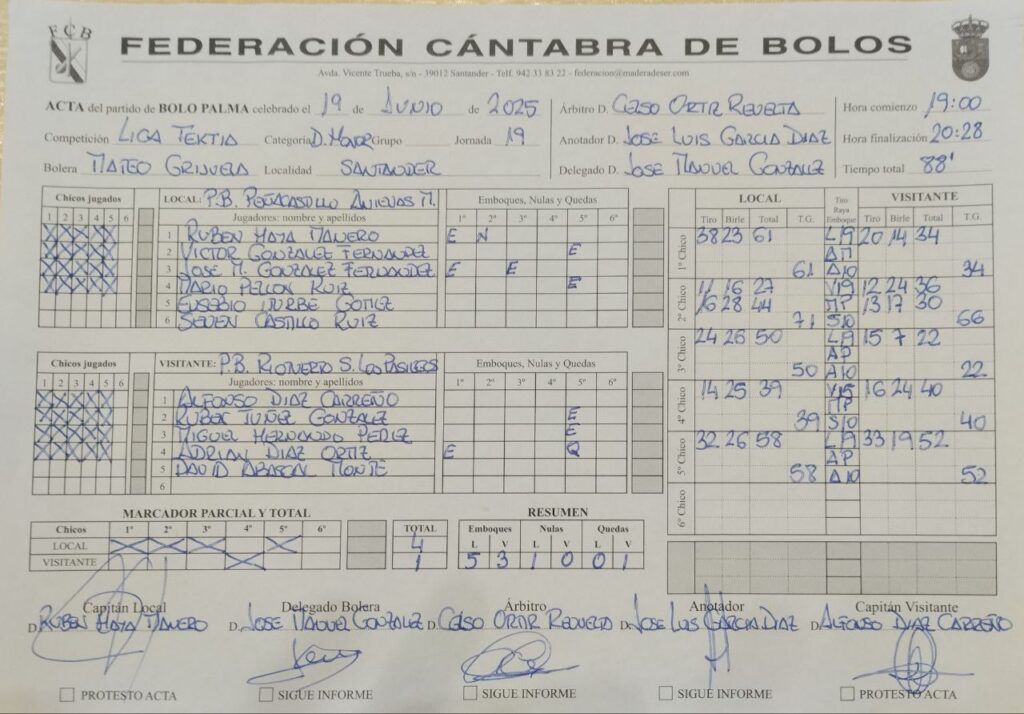 FCB
FEDERACIÓN CÁNTABRA DE BOLOS
Avda. Vicente Trueba, s/n - 39012 Santander - Telf. 942 33 83 22 - federacion@maderadeser.com
ACTA del partido de BOLO PALMA celebrado el 19 de JUNIO de 2025
Competición LIGA TEKTIA Categoría D. HONOR Grupo Jornada 19
Bolera MATEO GRIJUELA Localidad SANTANDER
Árbitro D. CELSO ORTIZ REVUELTA
Anotador D. JOSE LUIS GARCIA DIAZ
Delegado D. JOSE MANUEL GONZALEZ
Hora comienzo 19:00
Hora finalización 20:28
Tiempo total 88'
Chicos jugados LOCAL: P.B. PEÑACASTILLO ANIEVAS M. Emboques, Nulas y Quedas
1 2 3 4 5 6 Jugadores: nombre y apellidos 1º 2º 3º 4º 5º 6º
X X X X X 1 RUBEN HAYA MANERO E N
X X X X X 2 VICTOR GONZALEZ FERNANDEZ E
X X X X X 3 JOSE M. GONZALEZ FERNANDEZ E E
X X X X X 4 MARIO PELLON RUIZ E
5 EUSEBIO ITURBE GOMEZ
6 SEVEN CASTILLO RUIZ
Chicos jugados VISITANTE: P.B. RIONERO S. LOS PASIEGOS Emboques, Nulas y Quedas
1 2 3 4 5 6 Jugadores: nombre y apellidos 1º 2º 3º 4º 5º 6º
X X X X X 1 ALFONSO DIAZ CARREÑO
X X X X X 2 RUBEN TUÑEZ GONZALEZ E
X X X X X 3 MIGUEL HERNANDO PEREZ E
X X X X X 4 ADRIAN DIAZ ORTIZ E Q
5 DAVID ABASCAL MONTE
6
LOCAL Tiro Raya Emboque VISITANTE
Tiro Birle Total T.G. Tiro Birle Total T.G.
1º Chico 38 23 61 L19 20 14 34
ΔM
61 Δ10 34
2º Chico 11 16 27 V19 12 24 36
16 28 44 MP 13 17 30
71 S10 66
3º Chico 24 26 50 L19 15 7 22
AP
50 A10 22
4º Chico 14 25 39 V15 16 24 40
MP
39 S10 40
5º Chico 32 26 58 L19 33 19 52
AP
58 Δ10 52
6º Chico
MARCADOR PARCIAL Y TOTAL
Chicos 1º 2º 3º 4º 5º 6º TOTAL
LOCAL X X X X 4
VISITANTE X 1
RESUMEN
Emboques Nulas Quedas
L V L V L V
5 3 1 0 0 1
Capitán Local Delegado Bolera Árbitro Anotador Capitán Visitante
D. RUBEN HAYA MANERO D. JOSE MANUEL GONZALEZ D. CELSO ORTIZ REVUELTA D. JOSE LUIS GARCIA DIAZ D. ALFONSO DIAZ CARREÑO
PROTESTO ACTA SIGUE INFORME SIGUE INFORME SIGUE INFORME PROTESTO ACTA